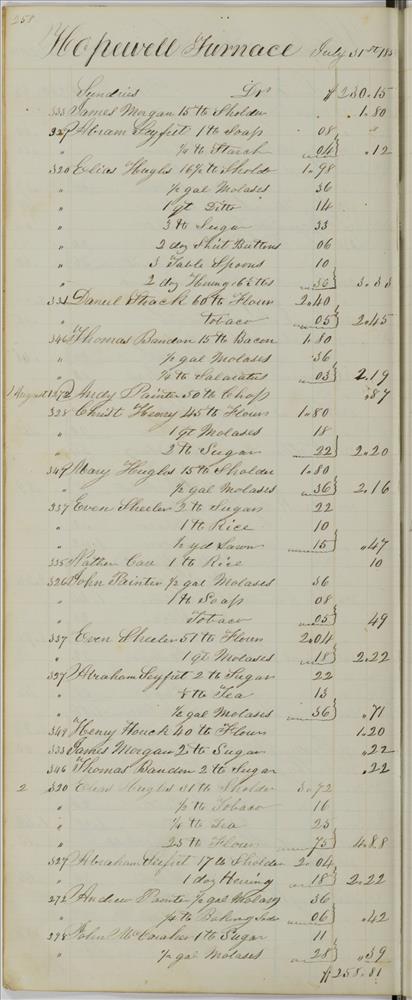 258
Hopewell Furnace July 31st 185
Sundries Dr $230.15
333 James Morgan 15 lb Sholder 1.80
327 Abram Seyfert 1 lb Soap 08
" ¼ lb Starch 04 .12
320 Elias Hughs 16½ lb Sholder 1.98
" ½ gal Molases 36
" 1 qt Ditto 14
" 3 lb Sugar 33
" 2 doz Shirt Buttons 06
" 3 Table Spoons 10
" 2 doz Hering 36
334 Daniel Strack 60 lb Flour 2.40
" Tobaco 05 2.45
346 Thomas Bandon 15 lb Bacon 1.80
" ½ gal Molases 36
" ¼ lb Salaratus 03 2.19
1 August 272 Andy Painter 50 lb Chop .87
328 Christ Henry 45 lb Flour 1.80
" 1 qt Molases 18
" 2 lb Sugar 22 2.20
347 Mary Hughs 15 lb Sholder 1.80
" ½ gal Molases 36 2.16
337 Even Sheeler 2 lb Sugar 22
" 1 lb Rice 10
" ½ yd Lawn 15 .47
335 Nathan Care 1 lb Rice 10
326 John Painter ½ gal Molases 36
" 1 lb Soap 08
" Tobaco 05 49
337 Even Sheeler 51 lb Flour 2.04
" 1 qt Molases 18 2.22
327 Abraham Seyfert 2 lb Sugar 22
" lb Tea 13
" ½ gal Molases 36 .71
349 Henry Houck 40 lb Flour 1.20
333 James Morgan 2 lb Sugar .22
346 Thomas Bandon 2 lb Sugar .22
2 320 Elias Hughs 31 lb Sholder 3.72
" ½ lb Tobaco 16
" ¼ lb Tea 25
" 25 lb Flour 75 4.88
327 Abraham Seyfert 17 lb Sholder 2.04
" 1 doz Hering 18 2.22
272 Andrew Painter ½ gal Molasy 36
" ¼ lb Baking Soda 06 .42
298 John McCaraher 1 lb Sugar 11
" ½ gal Molases 28 .39
$258.81